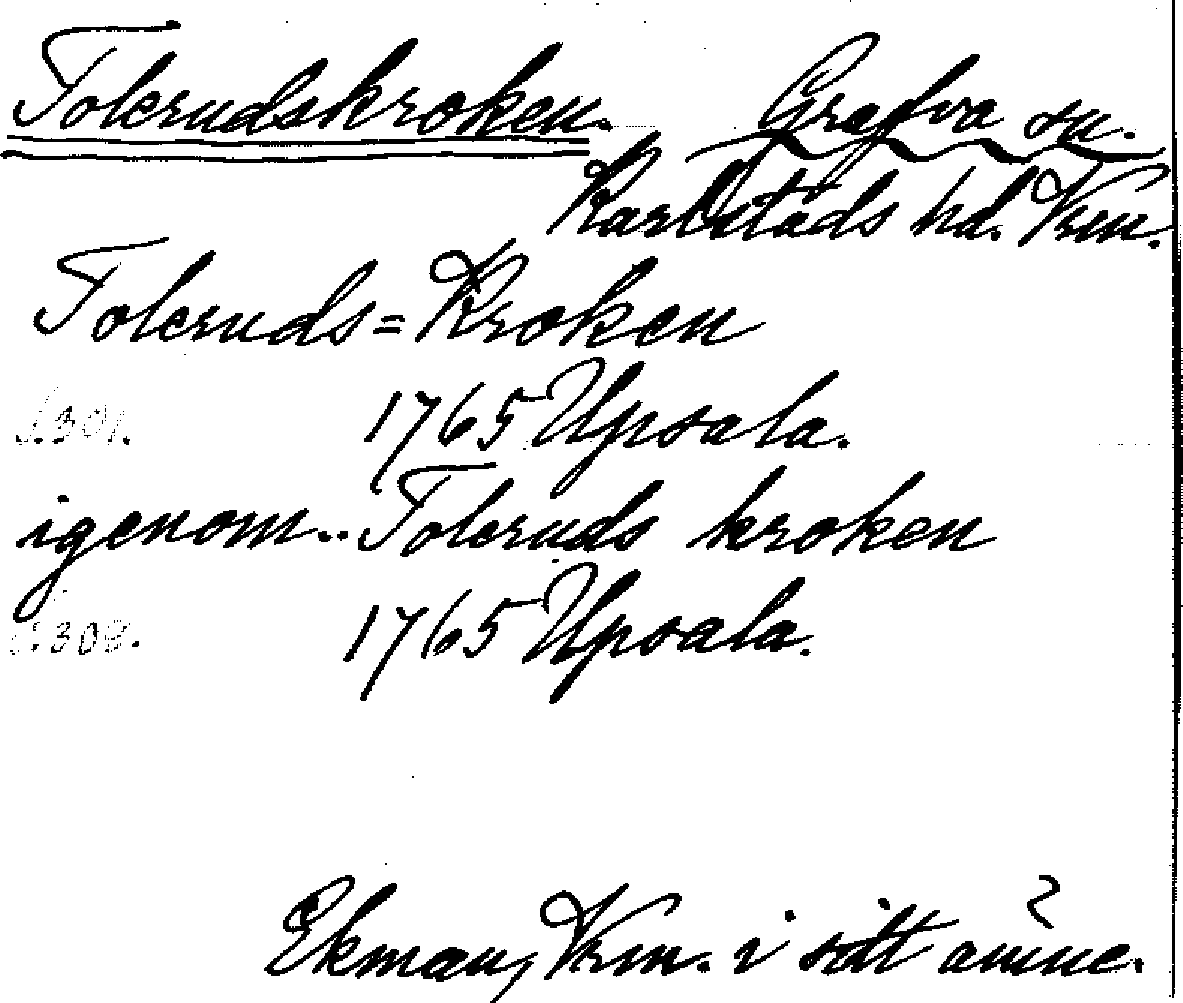 Tolerudskroken. Grafva sn.
Karlstads hd. Vrm.
Toleruds=Kroken
s.301. 1765 Upsala.
igenom.. Toleruds kroken
s.308. 1765 Upsala.
Ekman, Vrm. i sitt ämne.